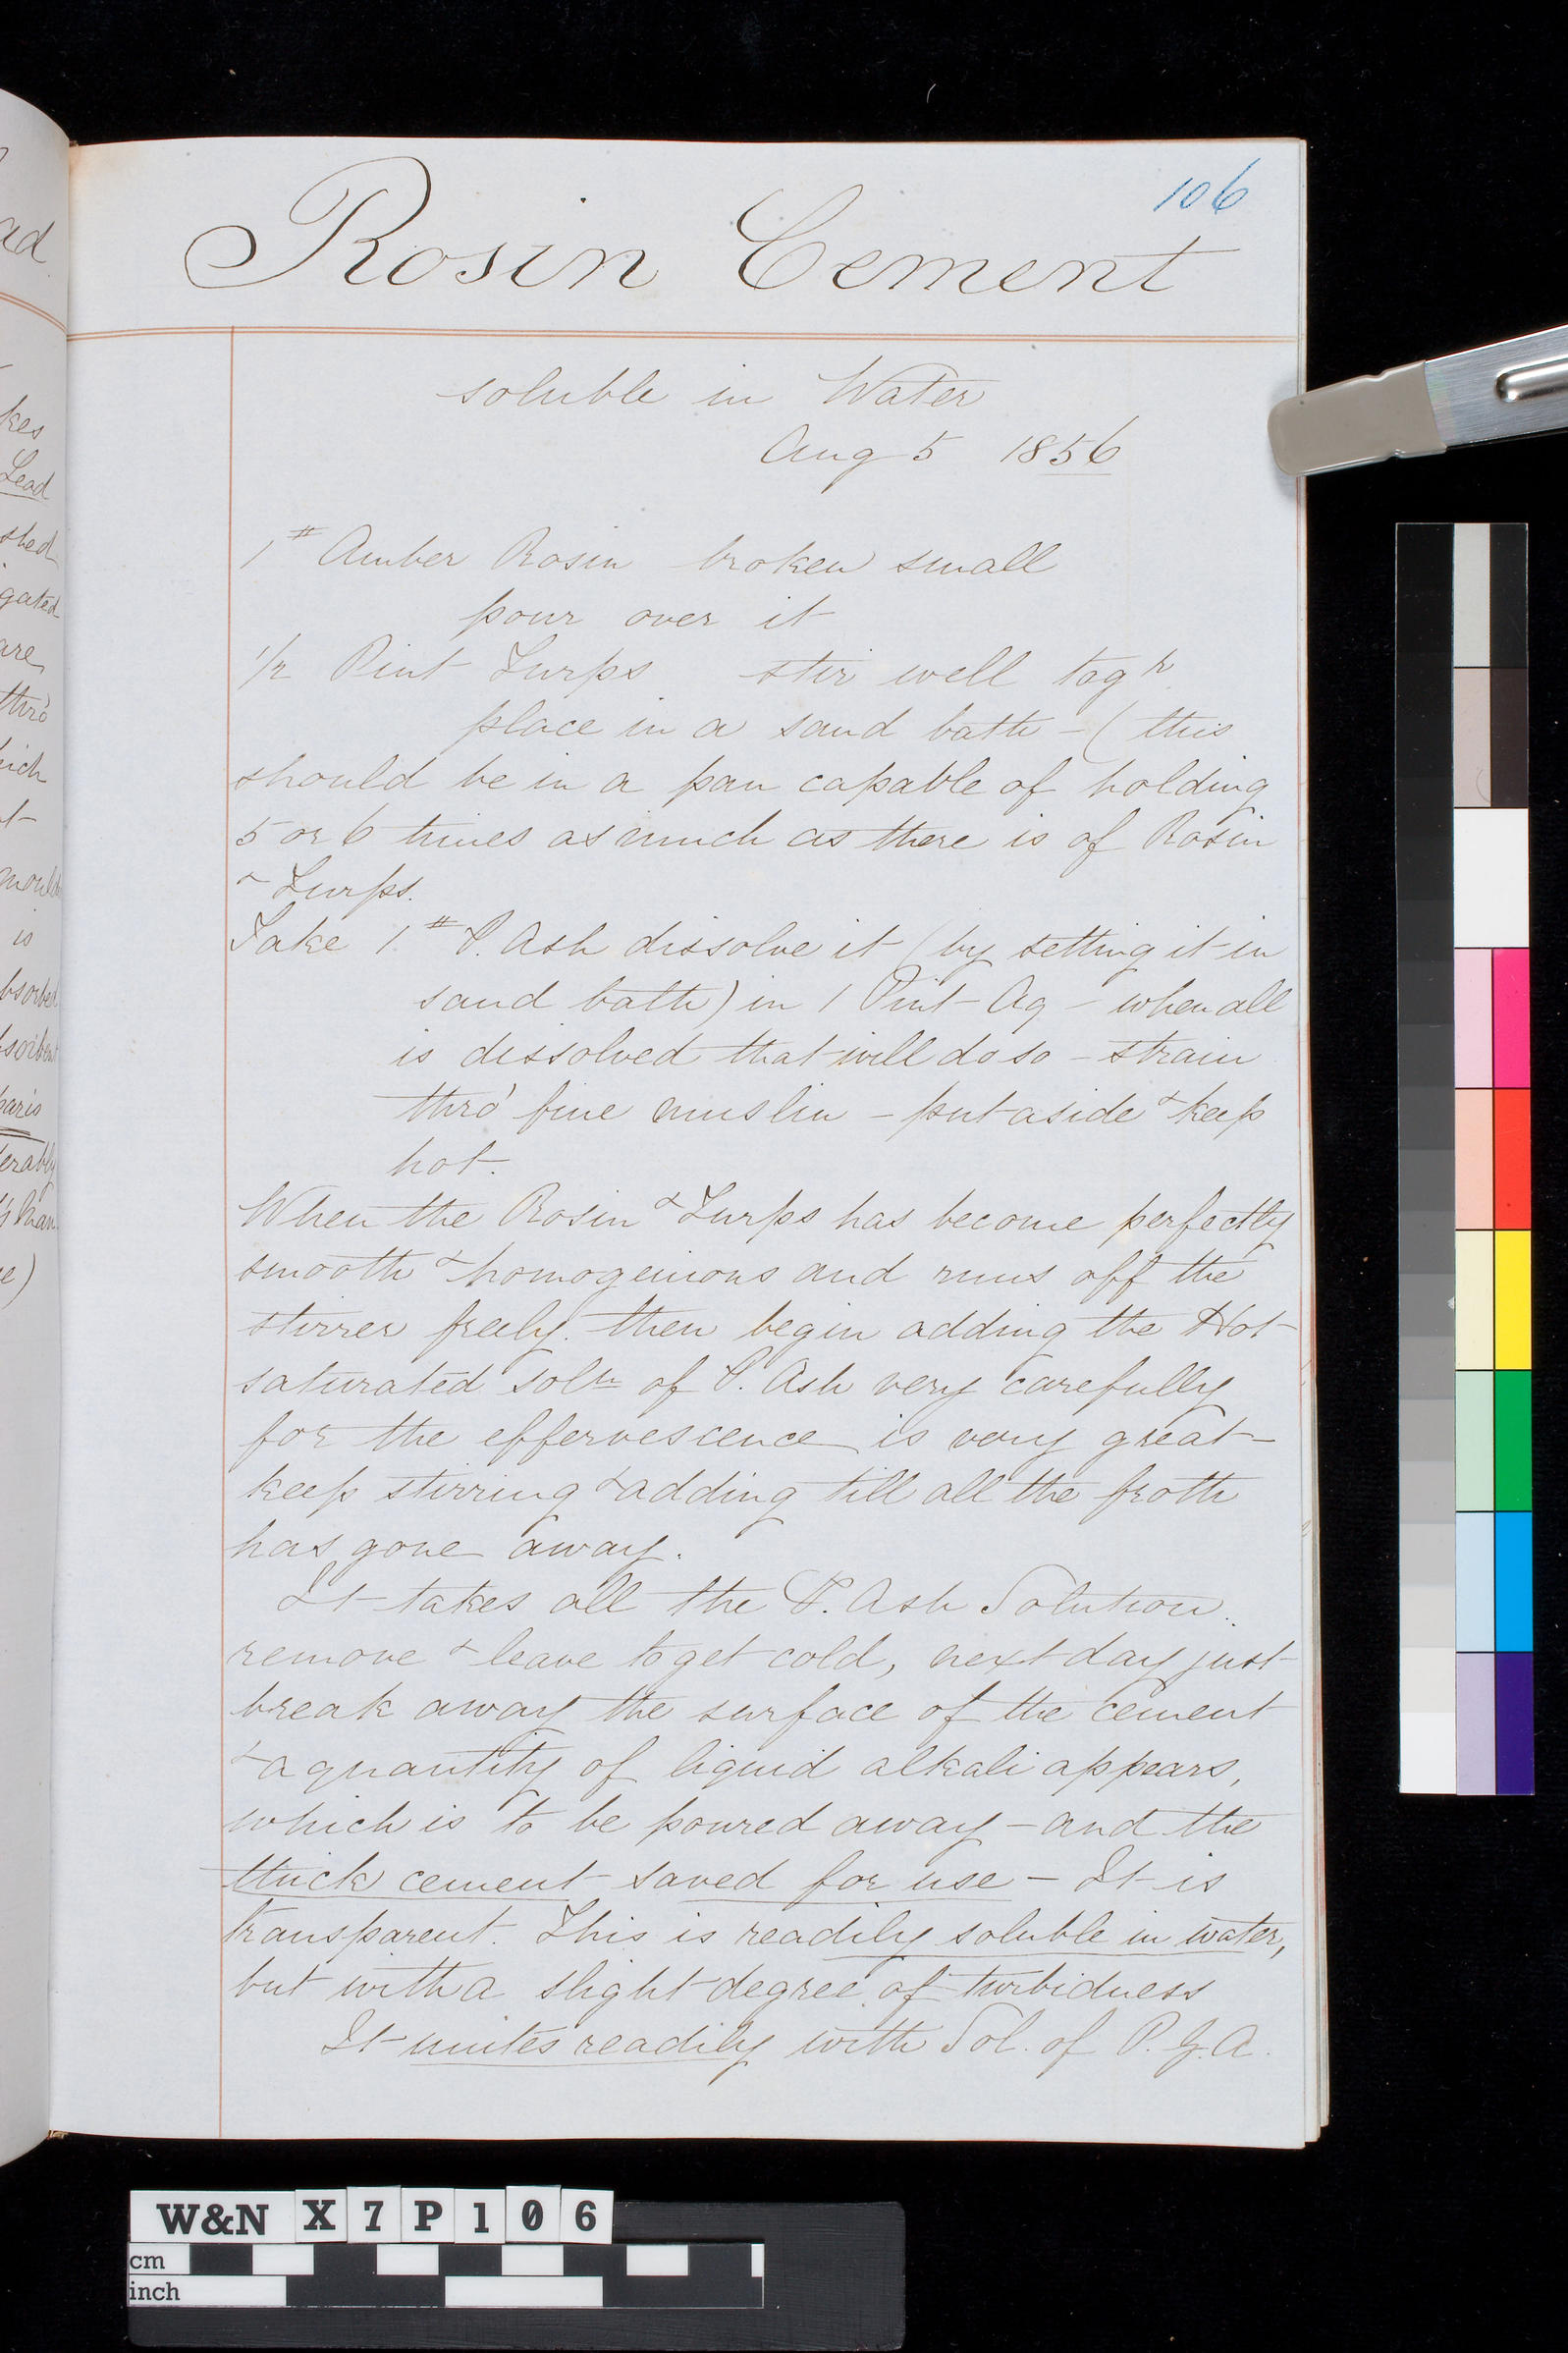 106
Rosin Cement
soluble in Water
Aug 5 1856
1# Amber Rosin broken small
pour over it
1/2 Pint Turps stir well togr
place in a sand bath - (this
should be in a pan capable of holding
5 or 6 times as much as there is of Rosin
& Turps.
Take 1# P. Ash dissolve it (by setting it in
sand bath) in 1 Pint Aq - when all
is dissolved that will do so - strain
thro' fine muslin - put aside & keep
hot.
When the Rosin & Turps has become perfectly
smooth & homogenious and runs off the
stirrer freely. then begin adding the Hot
saturated soln of P. Ash very carefully
for the effervescence is very great -
keep stirring & adding till all the froth
has gone away.
It takes all the P. Ash Solution.
remove & leave to get cold, next day just
break away the surface of the cement
& a quantity of liquid alkali appears,
which is to be poured away - and the
thick cement saved for use - It is
transparent. This is readily soluble in water,
but with a slight degree of turbidness
It unites readily with Sol. of P. G. A.
ad
kes
Lead
shed
gated
are
thro'
hich
t-
mould
is
bsorbed
bsorbent
paris
erably
e)
W&N X7P106
cm
inch